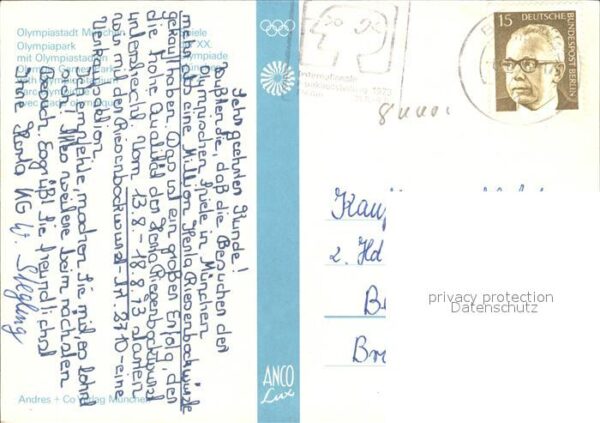 Olympiastadt München
Olympiapark
mit Olympiastadion
Sehr geehrter Kunde!
Wußten Sie, daß die Besucher der
Olympischen Spiele in München
mehr als eine Million Herta Riesenbockwürste
gekauft haben. Das ist ein großer Erfolg, der
die hohe Qualität der Herta Riesenbockwurst
unterstreicht. Vom 13.8 - 18.8.73 starten
wir mit der Riesenbockwurst-Art. 3710-eine
Verkaufsaktion.
Ich empfehle, machen Sie mit, es lohnt
sich! Alles weitere beim nächsten
Besuch. Es grüßt Sie freundlichst
Ihre Herta KG
Andres + Co Verlag München
ANCO
Lux
15
DEUTSCHE
BUNDESPOST BERLIN
Internationale
1973
Kauf
2. Hd
B
Br
privacy protection
Datenschutz